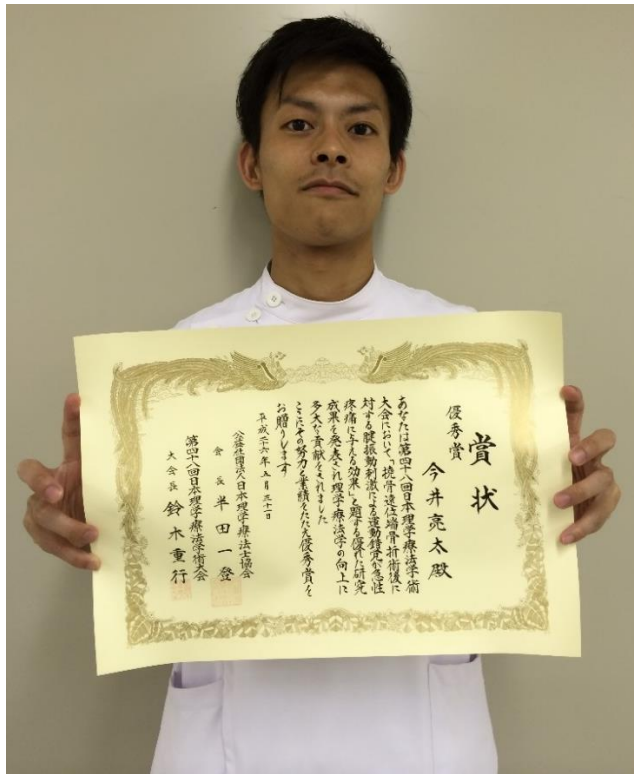 賞状
優秀賞
今井亮太殿
あなたは第四十八回日本理学療法学術
大会において、「橈骨遠位端骨折術後に
対する腱振動刺激による運動錯覚が急性
疼痛に与える効果」と題する優れた研究
成果を発表され理学療法学の向上に
多大な貢献をされました
ここにその努力と業績をたたえ優秀賞を
お贈りします
平成二十六年五月三十一日
公益社団法人日本理学療法士協会
会長 半田一登
第四十八回日本理学療法学術大会
大会長 鈴木重行